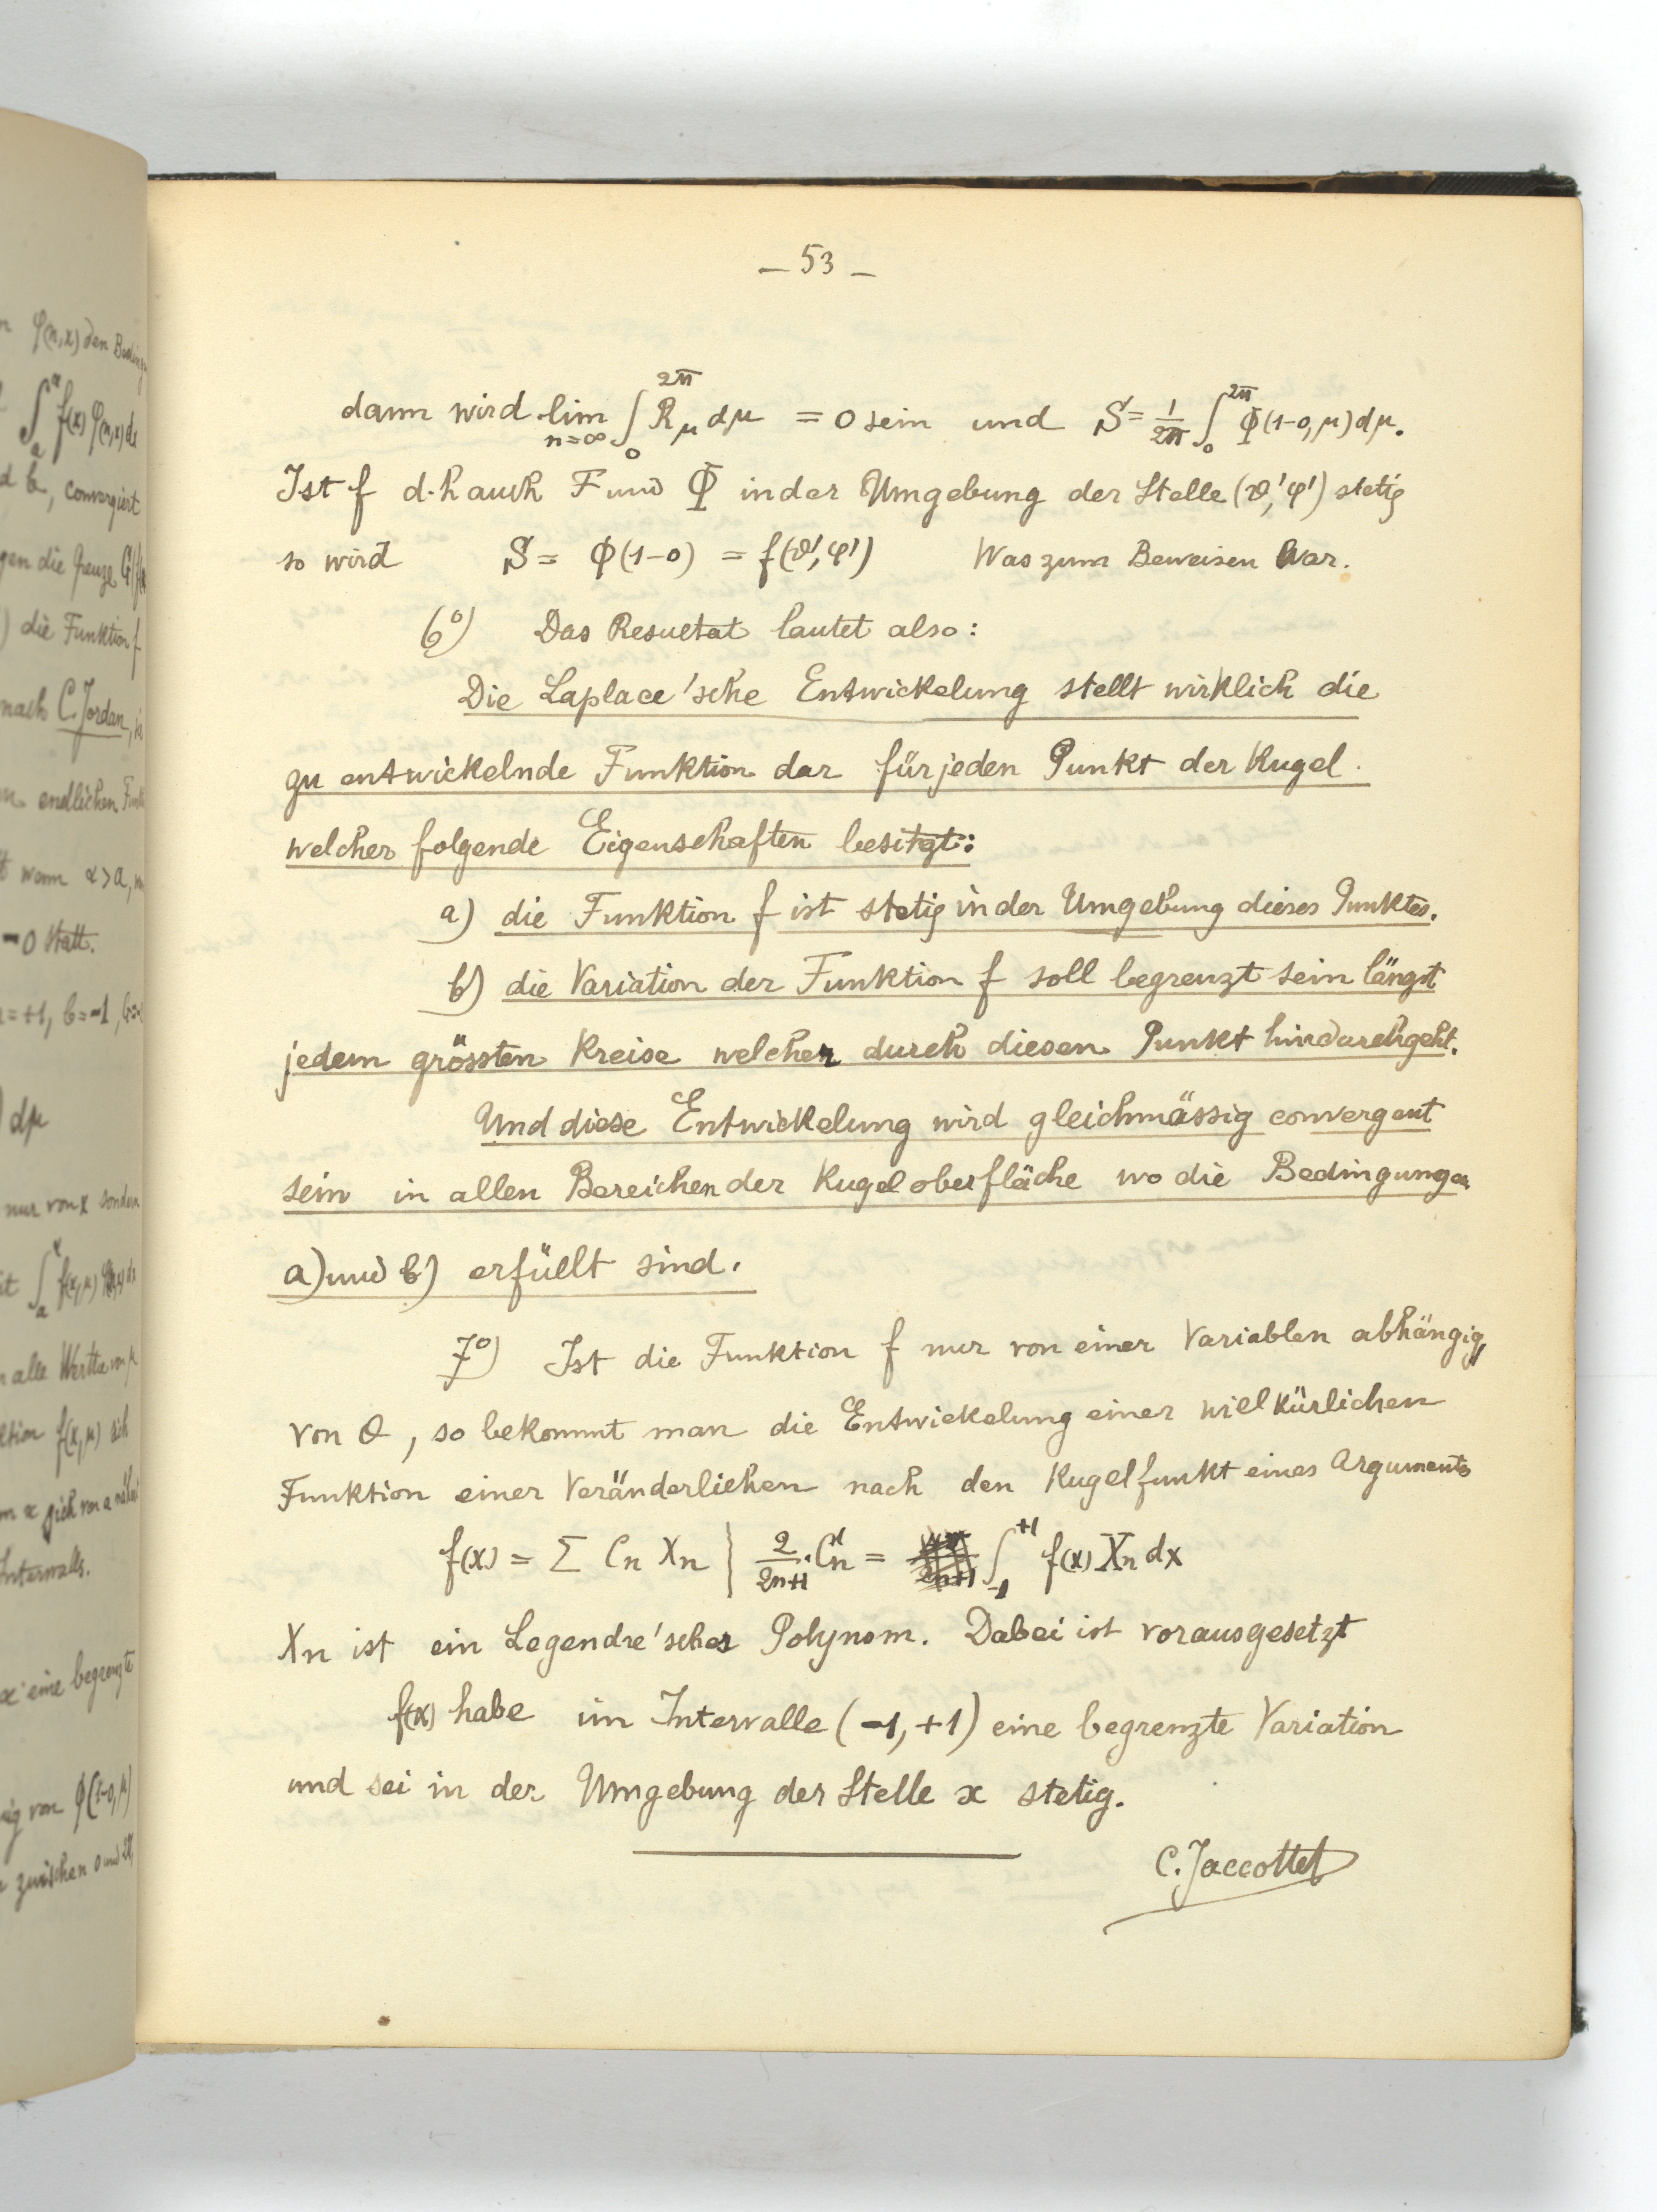 n φ(n,x) den Beding
∫ₐᵅ f(x) φ(n,x) dx
d b, convergiert
gen die Grenze G f(
) die Funktion f
nach C. Jordan, je
endlichen Funk
wenn α>a,
-0 statt.
=+1, b=-1, G=
) dμ
nur von x sondern
∫ₐˣ f(x,μ)
alle Werthe von μ
ktion f(x,μ) sich
sich von a
Intervalls.
eine begrenzte
ig von φ(1-0,μ)
zwischen 0 und 2π,
– 53 –
dann wird lim_{n=∞} ∫₀^{2π} R_μ dμ = 0 sein und S = 1/2π ∫₀^{2π} Φ(1-0,μ)dμ.
Ist f d.h auch F und Φ in der Umgebung der Stelle (ϑ',φ') stetig
so wird S = Φ(1-0) = f(ϑ',φ') Was zum Beweisen War.
6°) Das Resultat lautet also:
Die Laplace'sche Entwickelung stellt wirklich die
zu entwickelnde Funktion dar für jeden Punkt der Kugel.
welcher folgende Eigenschaften besitzt:
a) die Funktion f ist stetig in der Umgebung dieses Punktes.
b) die Variation der Funktion f soll begrenzt sein längst
jedem grössten Kreise welcher durch diesen Punkt hindurchgeht.
Und diese Entwickelung wird gleichmässig convergent
sein in allen Bereichen der Kugeloberfläche wo die Bedingungen
a) und b) erfüllt sind.
7°) Ist die Funktion f nur von einer Variablen abhängig,
von θ, so bekommt man die Entwickelung einer willkürlichen
Funktion einer Veränderlichen nach den Kugelfunkt eines Arguments
f(x) = Σ Cn Xn | 2/2n+1 · Cn = ∫₋₁⁺¹ f(x) Xn dx
Xn ist ein Legendre'sches Polynom. Dabei ist vorausgesetzt
f(x) habe im Intervalle (-1,+1) eine begrenzte Variation
und sei in der Umgebung der Stelle x stetig.
C. Jaccottet